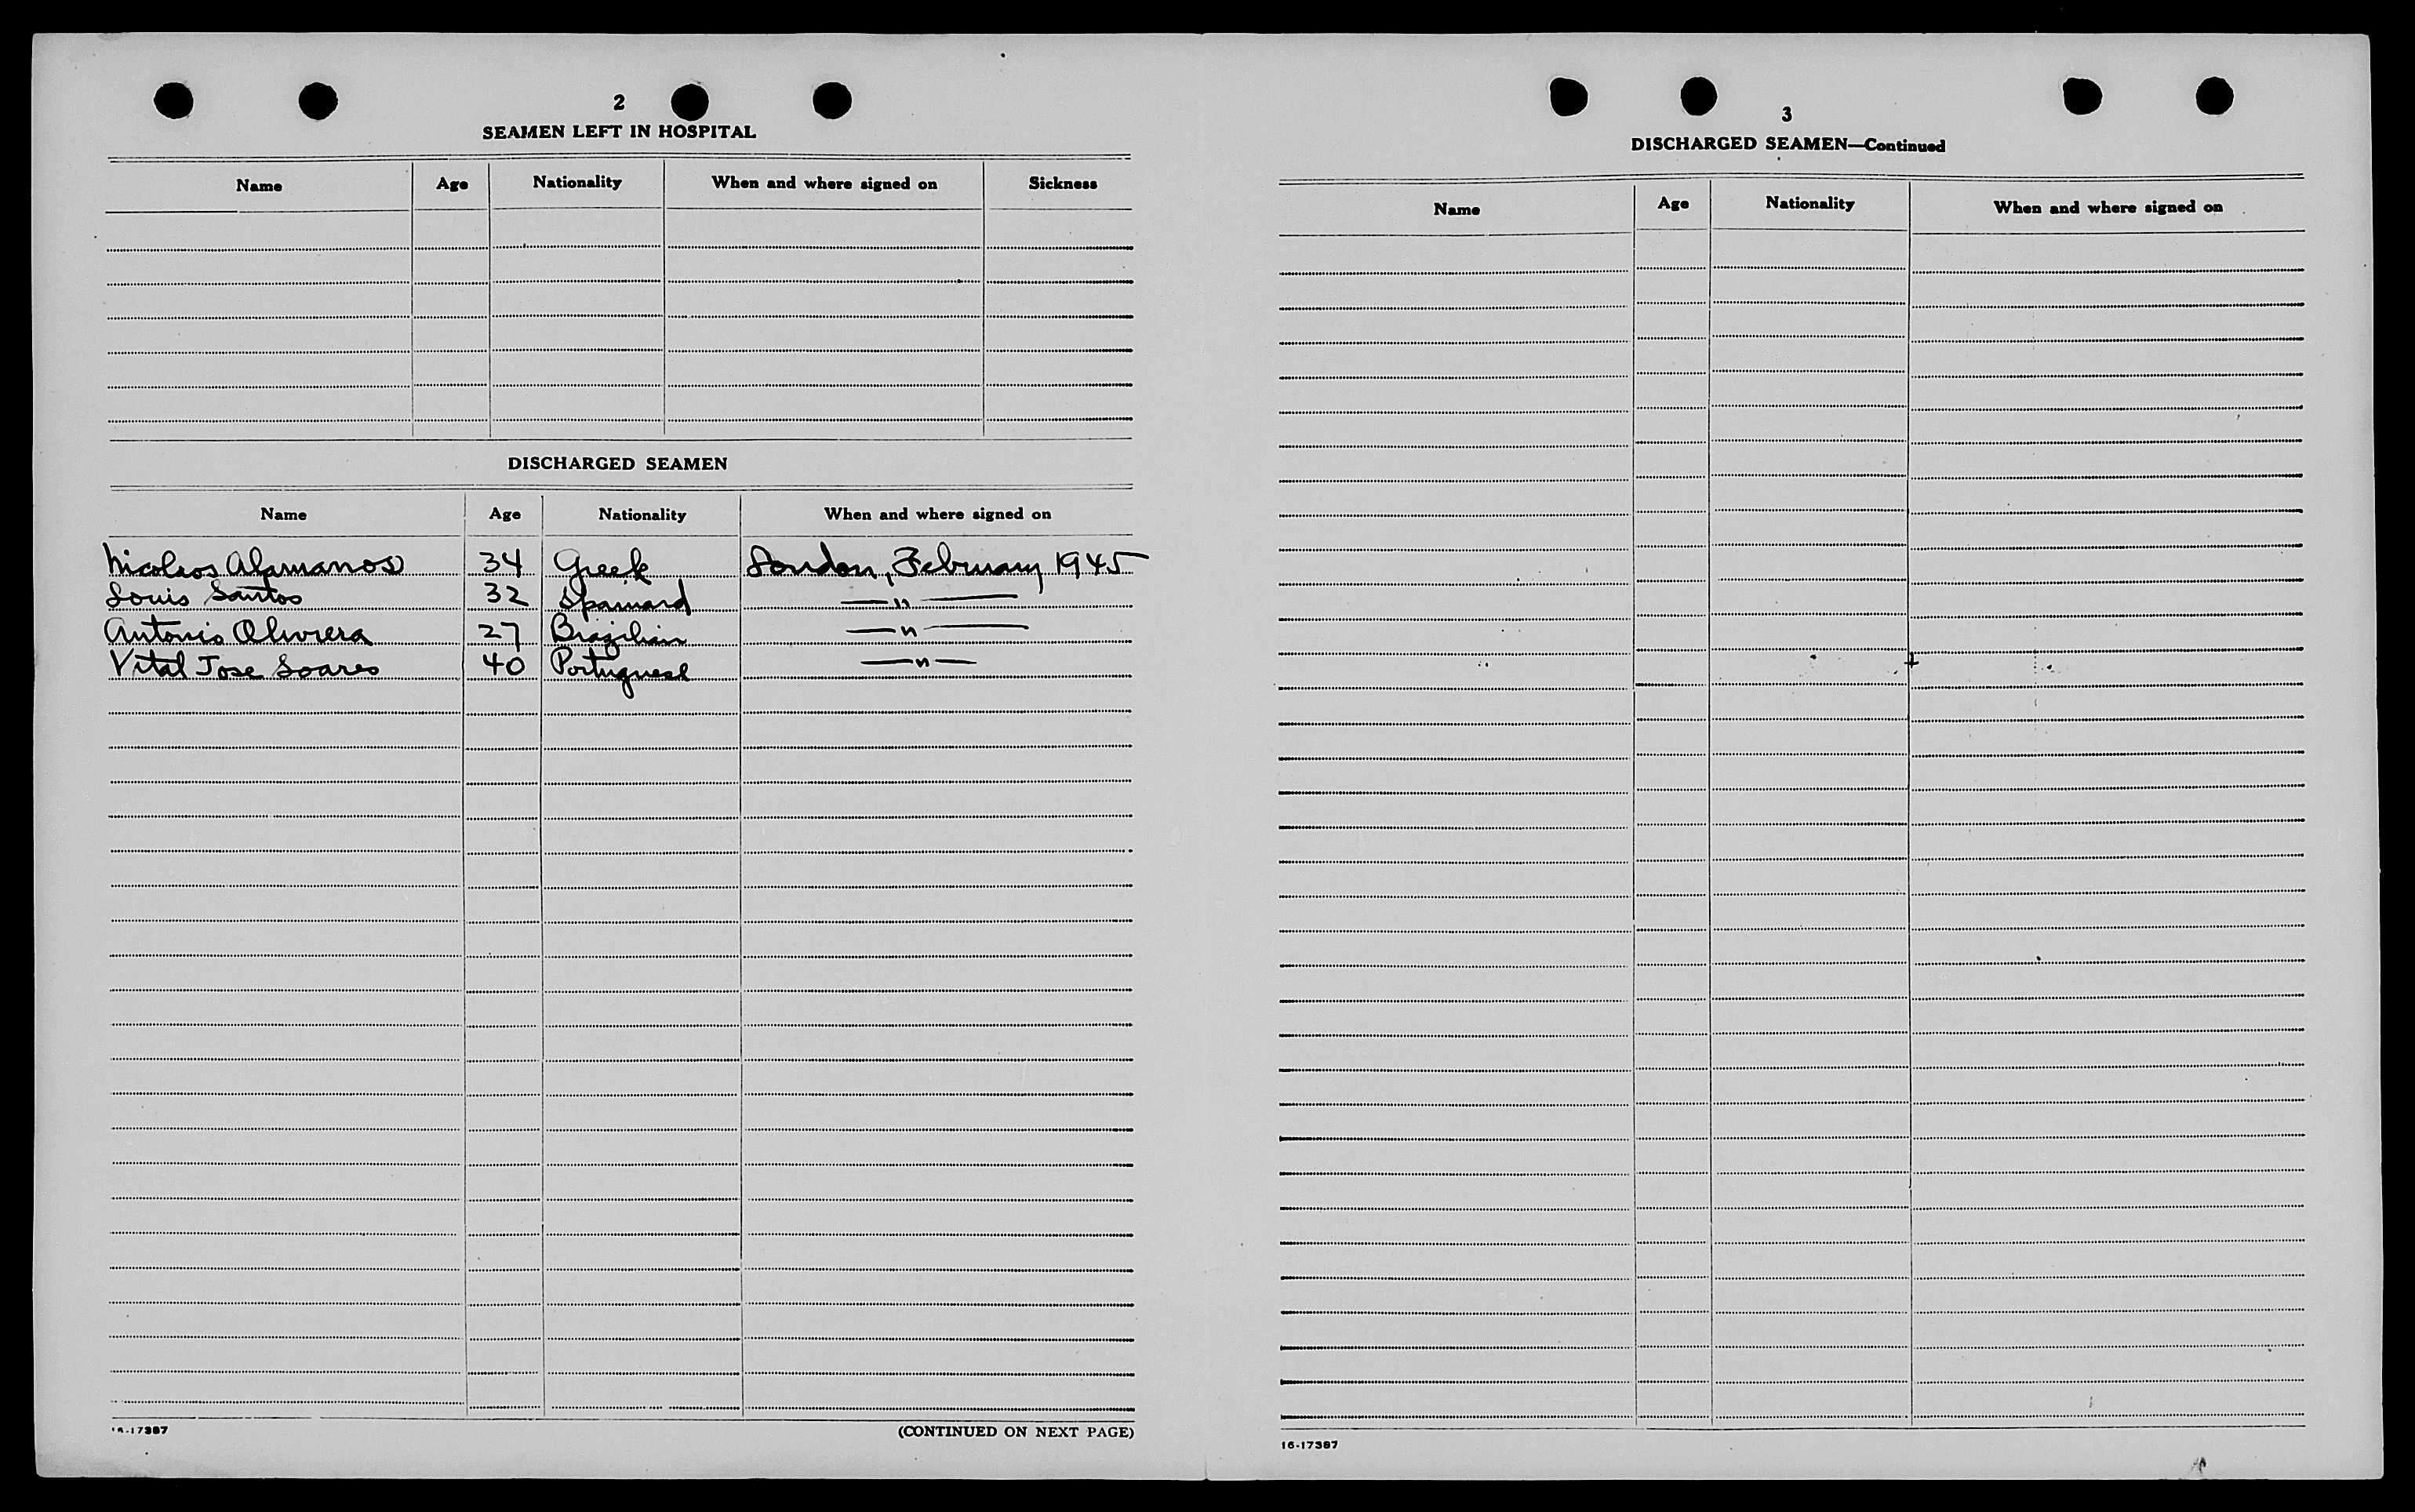 2
SEAMEN LEFT IN HOSPITAL
Name Age Nationality When and where signed on Sickness
DISCHARGED SEAMEN
Name Age Nationality When and where signed on
Nicolaos Alamanos 34 Greek London, February 1945
Louis Santos 32 Spaniard — " —
Antonio Oliviera 27 Brazilian — " —
Vital Jose Soares 40 Portuguese — " —
16-17387
(CONTINUED ON NEXT PAGE)
3
DISCHARGED SEAMEN—Continued
Name Age Nationality When and where signed on
16-17387